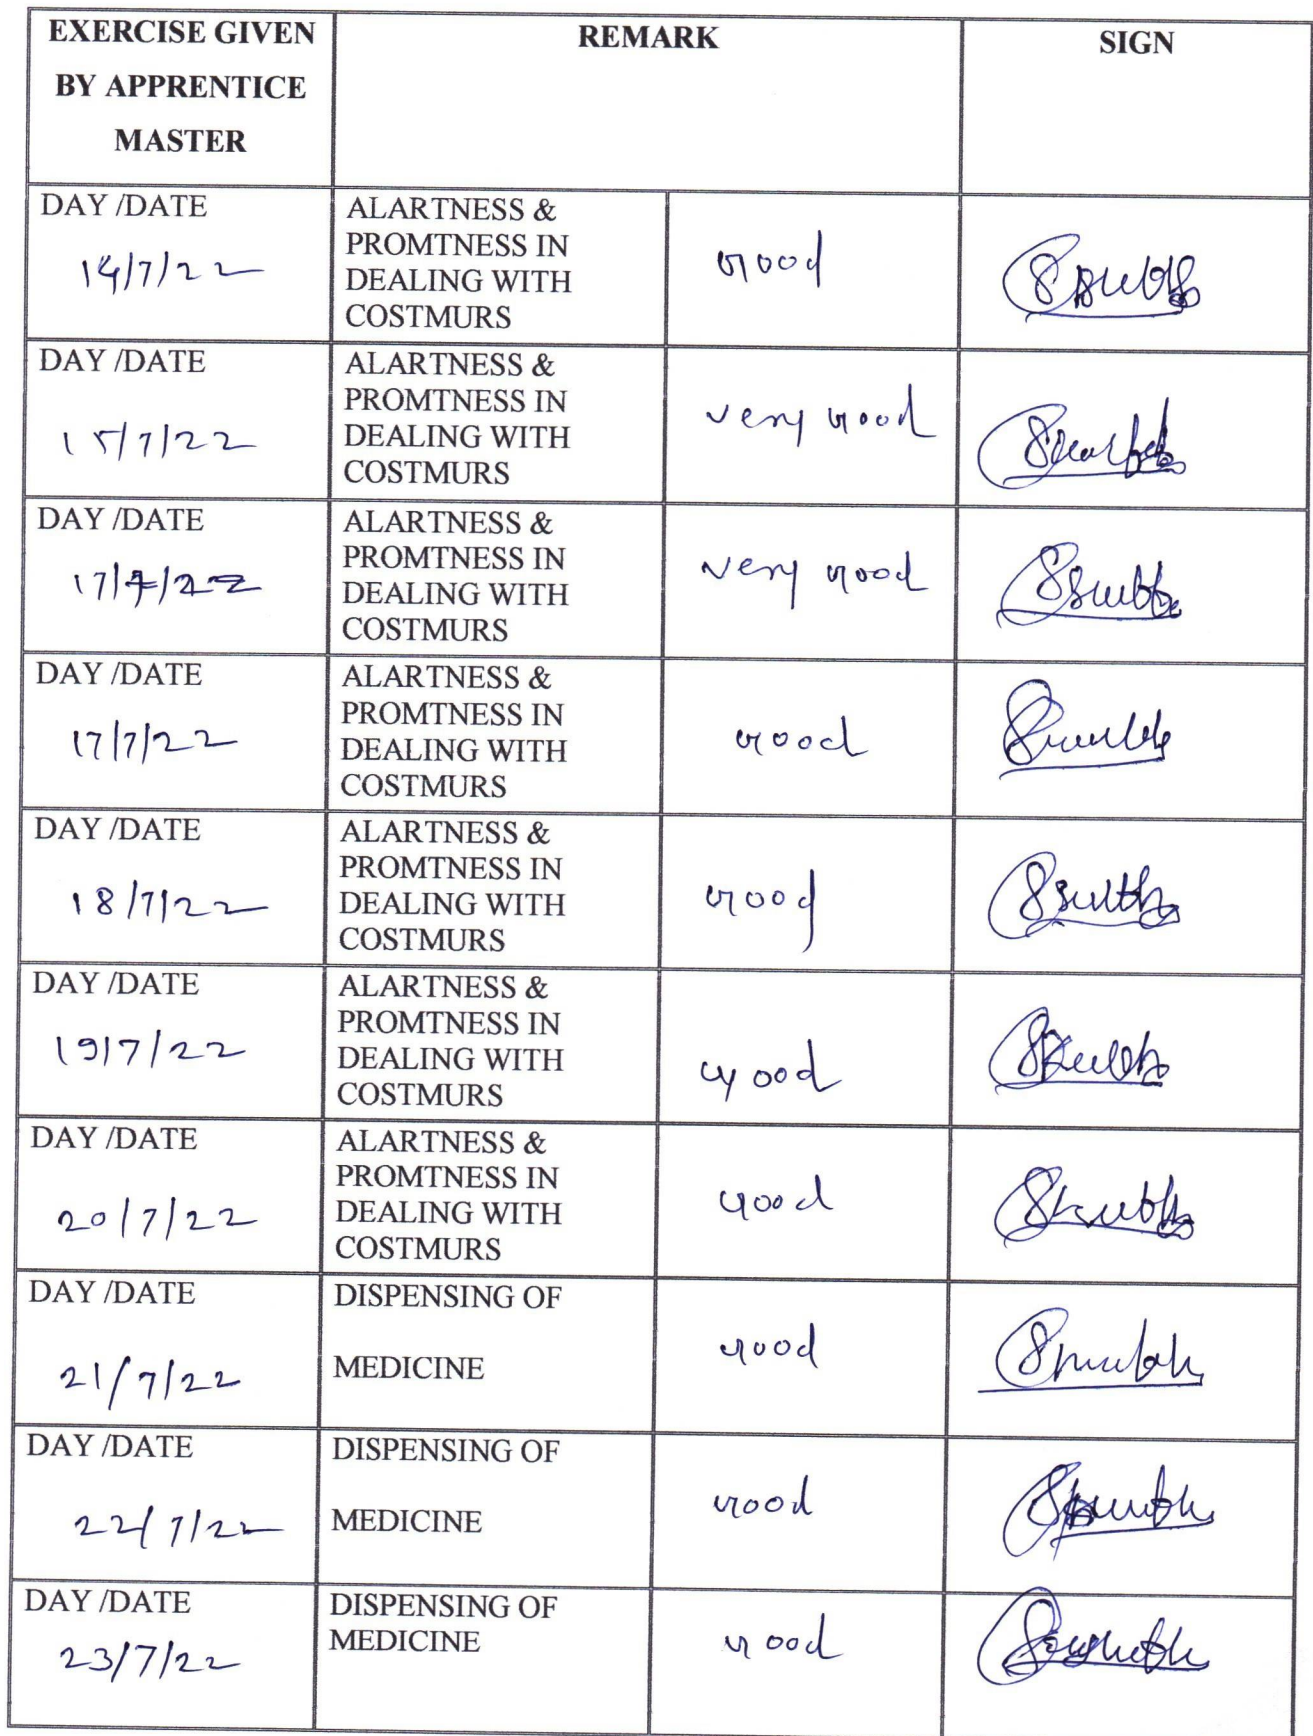 EXERCISE GIVEN
BY APPRENTICE
MASTER
REMARK
SIGN
DAY /DATE
14/7/22
ALARTNESS &
PROMTNESS IN
DEALING WITH
COSTMURS
Good
DAY /DATE
15/7/22
ALARTNESS &
PROMTNESS IN
DEALING WITH
COSTMURS
very Good
DAY /DATE
17/7/22
ALARTNESS &
PROMTNESS IN
DEALING WITH
COSTMURS
very Good
DAY /DATE
17/7/22
ALARTNESS &
PROMTNESS IN
DEALING WITH
COSTMURS
Good
DAY /DATE
18/7/22
ALARTNESS &
PROMTNESS IN
DEALING WITH
COSTMURS
Good
DAY /DATE
19/7/22
ALARTNESS &
PROMTNESS IN
DEALING WITH
COSTMURS
Good
DAY /DATE
20/7/22
ALARTNESS &
PROMTNESS IN
DEALING WITH
COSTMURS
Good
DAY /DATE
21/7/22
DISPENSING OF
MEDICINE
Good
DAY /DATE
22/7/22
DISPENSING OF
MEDICINE
Good
DAY /DATE
23/7/22
DISPENSING OF
MEDICINE
Good